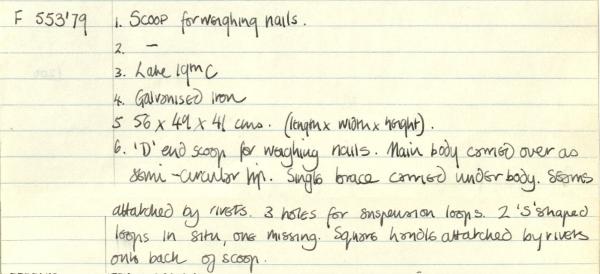 F 553'79 1. Scoop for weighing nails.
2. —
3. Late 19th C
4. Galvanised Iron
5 56 x 49 x 41 cms. (length x width x height).
6. 'D' end scoop for weighing nails. Main body carried over as
semi-circular lip. Single brace carried under body. Seams
attatched by rivets. 3 holes for suspension loops. 2 'S' shaped
loops in situ, one missing. Square handle attatched by rivets
onto back of scoop.